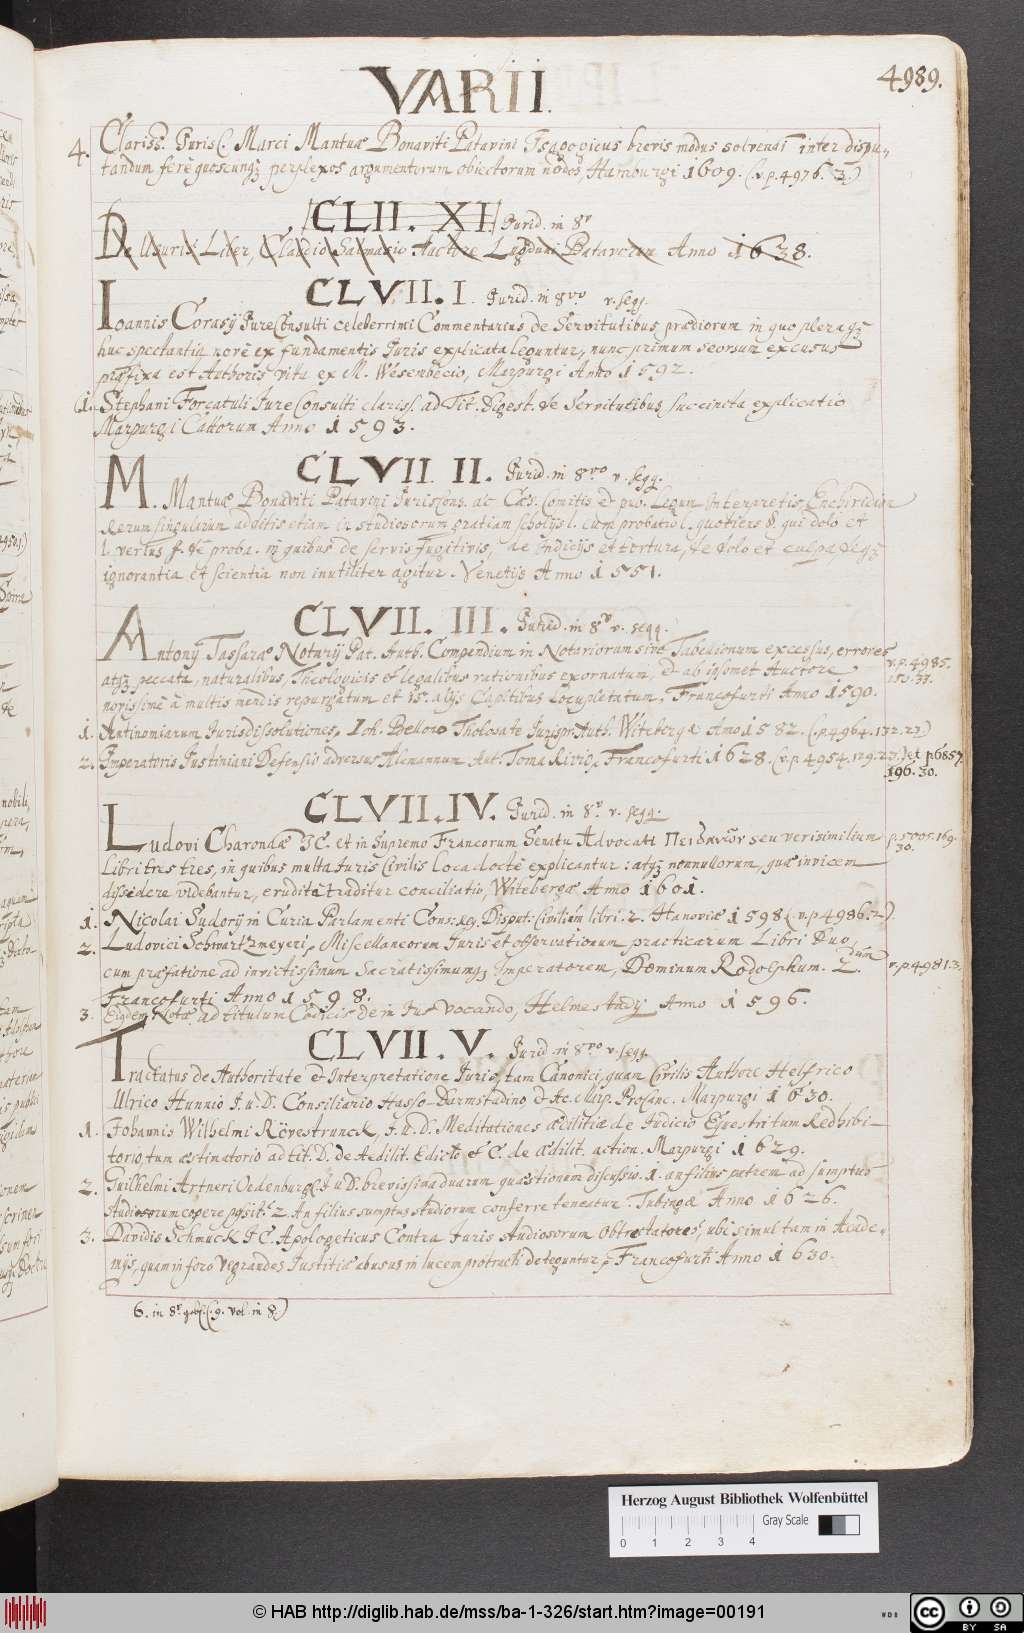 VARII.
4989.
4. Clariss. Jurisc. Marci Mantuæ Bonaviti Patavini Isagogicus brevis modus solvendi inter dispu„
tandum ferè quoscunq; perplexos argumentorum obiectorum nodos, Hamburgi 1609. (v. p. 4976. 3.)
CLII. XI. Jurid. in 8º
De Usuris Liber, Claudio Salmasio Auctore Lugduni Batavorum Anno 1638.
CLVII. I. Jurid. in 8vo v. seqq.
Ioannis Corasÿ JureConsulti celeberrimi Commentarius de Servitutibus prædiorum in quo pleraq;
huc spectantia novè ex fundamentis Juris explicata leguntur, nunc primum seorsum excusus
præfixa est Authoris vita ex M. Wesembecio, Marpurgi Anno 1592.
1. Stephani Forcatuli JureConsulti clariss. ad Tit. Digest. de Servitutibus succincta explicatio
Marpurgi Cattorum Anno 1593.
CLVII. II. Jurid. in 8vo v. seqq.
M. Mantuæ Bonaviti Patavini Juriscons. ac Cæs. Comitis et pub. Legum Interpretis, Enchiridion
Rerum singularum additis etiam in studiosorum gratiam scholÿs l. cum probatio l. quotiens §. qui dolo et
l. verius f. de proba. in quibus de servis fugitivis, de Indicÿs et tortura, de dolo et culpa, deq;
ignorantia et scientia non inutiliter agitur. Venetÿs Anno 1551.
CLVII. III. Jurid. in 8º v. seqq.
Antonÿ Tassaræ Notarÿ Pat. Auth. Compendium in Notariorum sive Tabellionum excessus, errores
atq; peccata, naturalibus, Theologicis et legalibus rationibus exornatum, et ab ipsomet Auctore
novissimè à multis mendis repurgatum et 15. alÿs Capitibus locupletatum, Francofurti Anno 1590.
v. p. 4985.
1. Antinomiarum Juris dissolutiones, Joh. Bellono Tholosate Jurispr. Auth. Witebergæ Anno 1582. (v. p. 4964. 172. 27.)
2. Imperatoris Justiniani Defensio adversus Alemannum Aut. Toma Rivio, Francofurti 1628. (v. p. 4954. 129. 23.) et p. 6857.
196. 30.
CLVII. IV. Jurid. in 8º v. seqq.
Ludovi Charondæ JC. et in Supremo Francorum Senatu Advocati Πειθανῶν seu verisimilium
p. 5005. 169.
30.
Libri tres tres, in quibus multa Juris Civilis loca doctè explicantur: atq; nonnullorum, quæ invicem
dissidere videbantur, erudita traditur conciliatio, Witebergæ Anno 1601.
1. Nicolai Sudorÿ in Curia Parlamenti Cons: reg. Disput: Civilium libri. 2. Hanoviæ 1598. (v. p. 4986. 2.)
2. Ludovici Schwartzmeyeri, Miscellaneorum Juris et observationum practicarum Libri Duo,
cum præfatione ad invictissimum Sacratissimumq; Imperatorem, Dominum Rodolphum. 2.dum
v. p. 4981. 3.
Francofurti Anno 1598.
3. Eigdem Notæ ad titulum Codicis de in Jus vocando, Helmestadÿ Anno 1596.
CLVII. V. Jurid in 8vo v. seqq.
Tractatus de Authoritate et Interpretatione Juris, tam Canonici, quam Civilis Authore Helfrico
Ulrico Hunnio J. u. D. Consiliario Hasso-Darmstadino et Ac. Marp. Procanc. Marpurgi 1630.
1. Johannis Wilhelmi Rövestrunck, J. u. D. Meditationes ædilitiæ de Judicio Equestri tum Redhibi-
torio, tum æstimatorio ad tit. D. de Aedilit. Edicto et C. de ædilit. action. Marpurgi 1629.
2. Guilhelmi Artneri Oedenburg. J. u. D. brevissima duarum quæstionum discussio. 1. an filius patrem ad sumptus
studiorum cogere possit? 2. An filius sumptus studiorum conferre teneatur. Tubingæ Anno 1626.
3. Davidis Schmuck JC. Apologeticus Contra Juris studiosorum Obtrectatores, ubi simul tam in Acade„
mÿs, quam in foro vegrandes Justitiæ abusus in lucem protracti deteguntur, Francofurti Anno 1630.
6. in 8º (9. vol. in 8.)
Herzog August Bibliothek Wolfenbüttel
Gray Scale
0 1 2 3 4
© HAB http://diglib.hab.de/mss/ba-1-326/start.htm?image=00191
WDB
cc BY SA